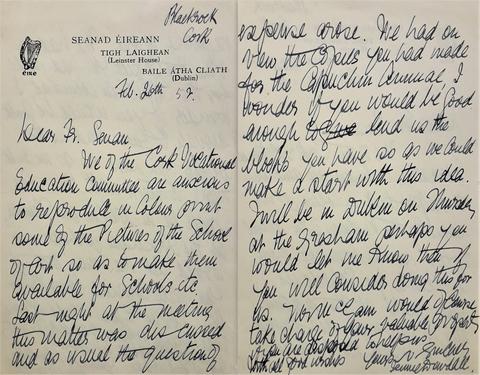 Blackrock
Cork
SEANAD ÉIREANN
TIGH LAIGHEAN
(Leinster House)
BAILE ÁTHA CLIATH
(Dublin)
éire
Feb. 20th 52.
Dear Fr. Senan,
We of the Cork Vocational
Education Committee are anxious
to reproduce in Colour print
some of the Pictures of the School
of Art so as to make them
available for Schools etc
Last night at the meeting
this matter was discussed
and as usual the question of
expense arose. We had on
view the Copies you had made
for the Capuchin Annual. I
wonder if you would be good
enough to lend us the
blocks you have so as we could
make a start with this idea.
I will be in Dublin on Thursday
at the Gresham perhaps you
would let me know then if
you will consider doing this for
us. would of course
take charge of your valuable property
when are disposed
with all good wishes Yours v. Sincerely
Jennie Dowdall.